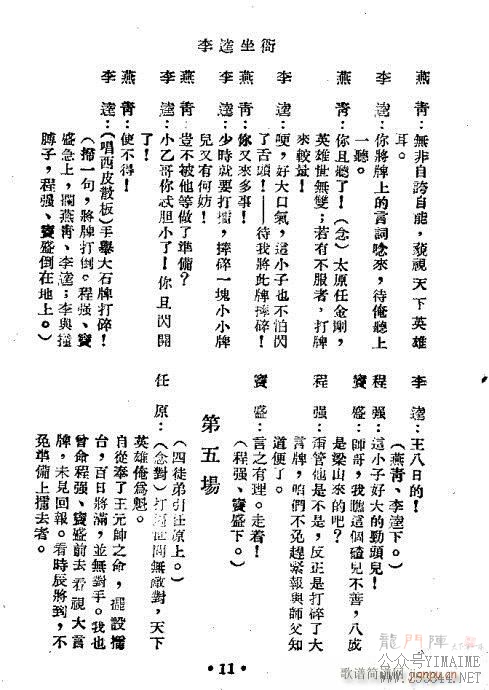 李逵坐衙
燕青：無非自誇自能，藐視天下英雄
耳。
李逵：你將牌上的言詞唸來，待俺聽上
一聽。
燕青：你且聽了！（念）太原任金剛，
英雄世無雙；若有不服者，打牌
來較量！
李逵：哽，好大口氣，這小子也不怕閃
了舌頭！——待我將此牌摔碎！
燕青：你又來多事！
李逵：少時就要打擂，摔碎一塊小小牌
兒又有何妨！
燕青：豈不被他等做了準備？
李逵：小乙哥你忒胆小了！你且閃開
了！
燕青：使不得！
李逵：（唱西皮散板）手舉大石牌打碎！
（掃一句，將牌打倒。程强、竇
盛急上，攔燕青、李逵；李與撞
膀子，程强、竇盛倒在地上。）
李逵：王八日的！
（燕青、李逵下。）
程强：這小子好大的勁頭兒！
竇盛：師哥，我聽這個碴兒不善，八成
是梁山來的吧？
程强：甭管他是不是，反正是打碎了大
言牌，咱們不免趕緊報與師父知
道便了。
竇盛：言之有理。走着！
（程强、竇盛下。）
第五場
（四徒弟引任原上。）
任原：（念對）打遍世間無敵對，天下
英雄俺爲魁。
自從奉了王元帥之命，擺設擂
台，百日將滿，並無對手。我也
曾命程强、竇盛前去看視大言
牌，未見回報。看時辰將到，不
免準備上擂去者。
·11·
龍門陣
公众号YIMAIME
歌谱简谱网